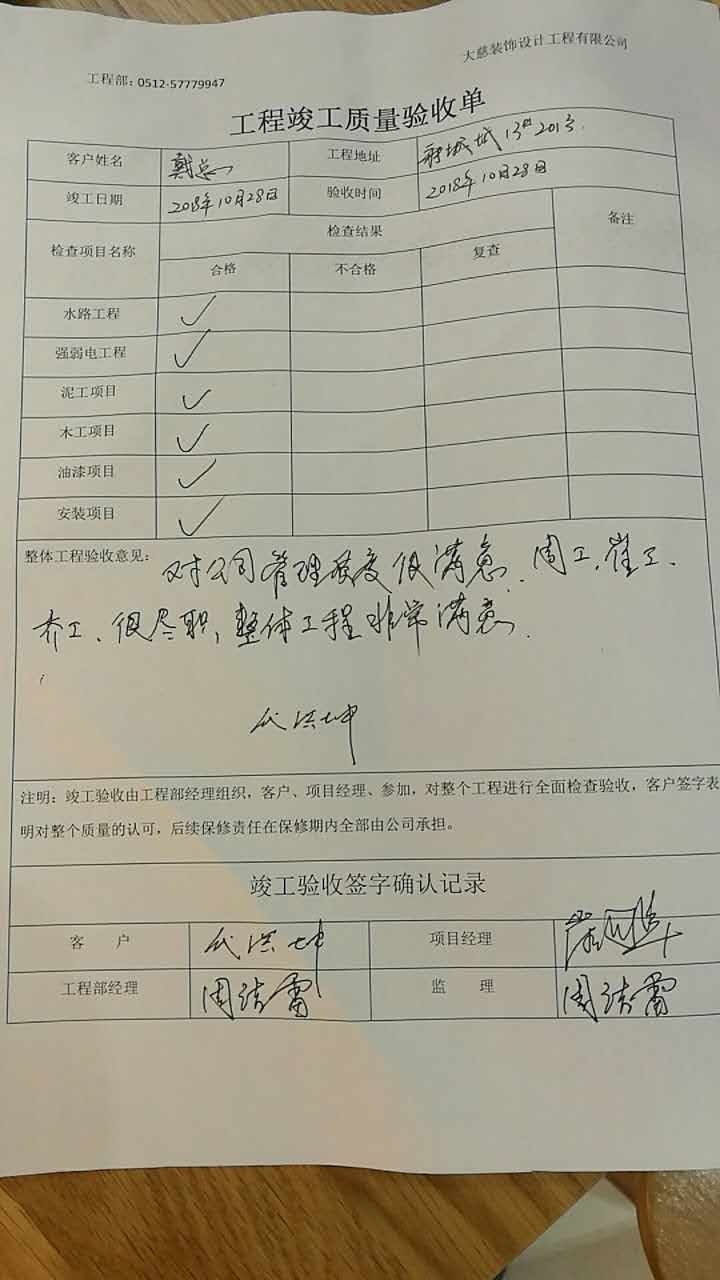 大慈装饰设计工程有限公司
工程部：0512-57779947
工程竣工质量验收单
客户姓名 戴总 工程地址 13# 2013.
竣工日期 2018年10月28日 验收时间 2018年10月28日
检查项目名称 检查结果 备注
合格 不合格 复查
水路工程 ✓
强弱电工程 ✓
泥工项目 ✓
木工项目 ✓
油漆项目 ✓
安装项目 ✓
整体工程验收意见：对公司管理制度很满意、周工、崔工、
乔工、很尽职，整体工程非常满意.
代洪坤
注明：竣工验收由工程部经理组织，客户、项目经理、参加，对整个工程进行全面检查验收，客户签字表
明对整个质量的认可，后续保修责任在保修期内全部由公司承担。
竣工验收签字确认记录
客 户 代洪坤 项目经理
工程部经理 周结雷 监 理 周结雷